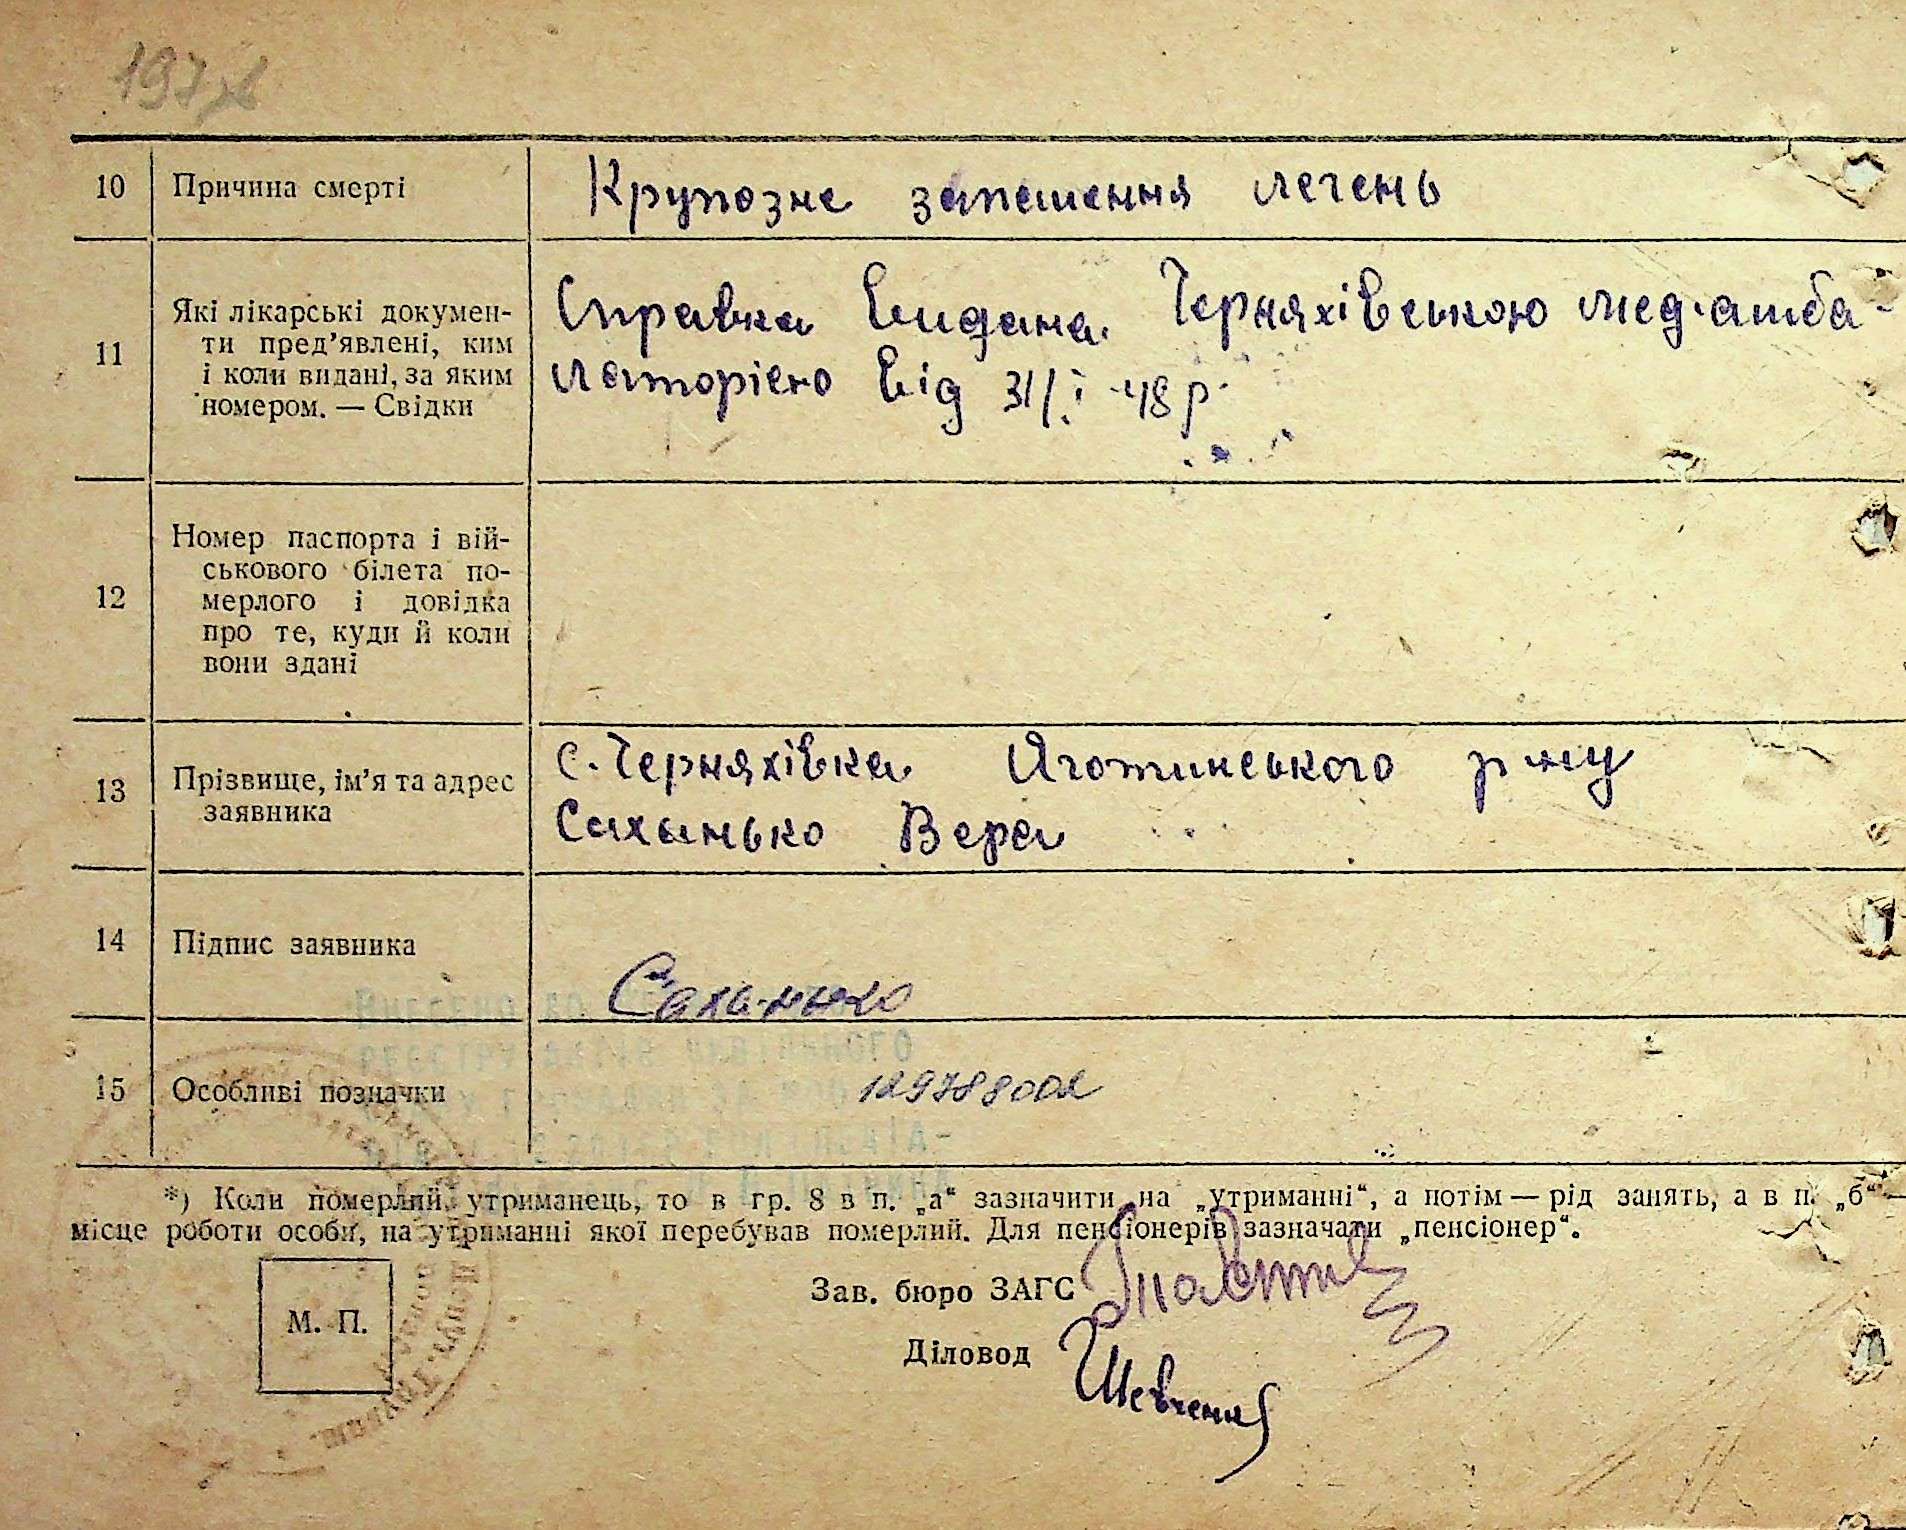 10 Причина смерті Крупозне запалення легень
11 Які лікарські докумен-
ти пред'явлені, ким
і коли видані, за яким
номером. — Свідки
Справка видана Черняхівською мед. амба-
латорією від 31/I 48 р.
12 Номер паспорта і вій-
ськового білета по-
мерлого і довідка
про те, куди й коли
вони здані
13 Прізвище, ім'я та адрес
заявника
с. Черняхівка Яготинського р-ну
Саханько Вера
14 Підпис заявника
Саханько
15 Особливі позначки 129788002
*) Коли померлий утриманець, то в гр. 8 в п. „а“ зазначити на „утриманні“, а потім — рід занять, а в п. „б“ —
місце роботи особи, на утриманні якої перебував померлий. Для пенсіонерів зазначати „пенсіонер“.
Зав. бюро ЗАГС
М. П.
Діловод Шевченко